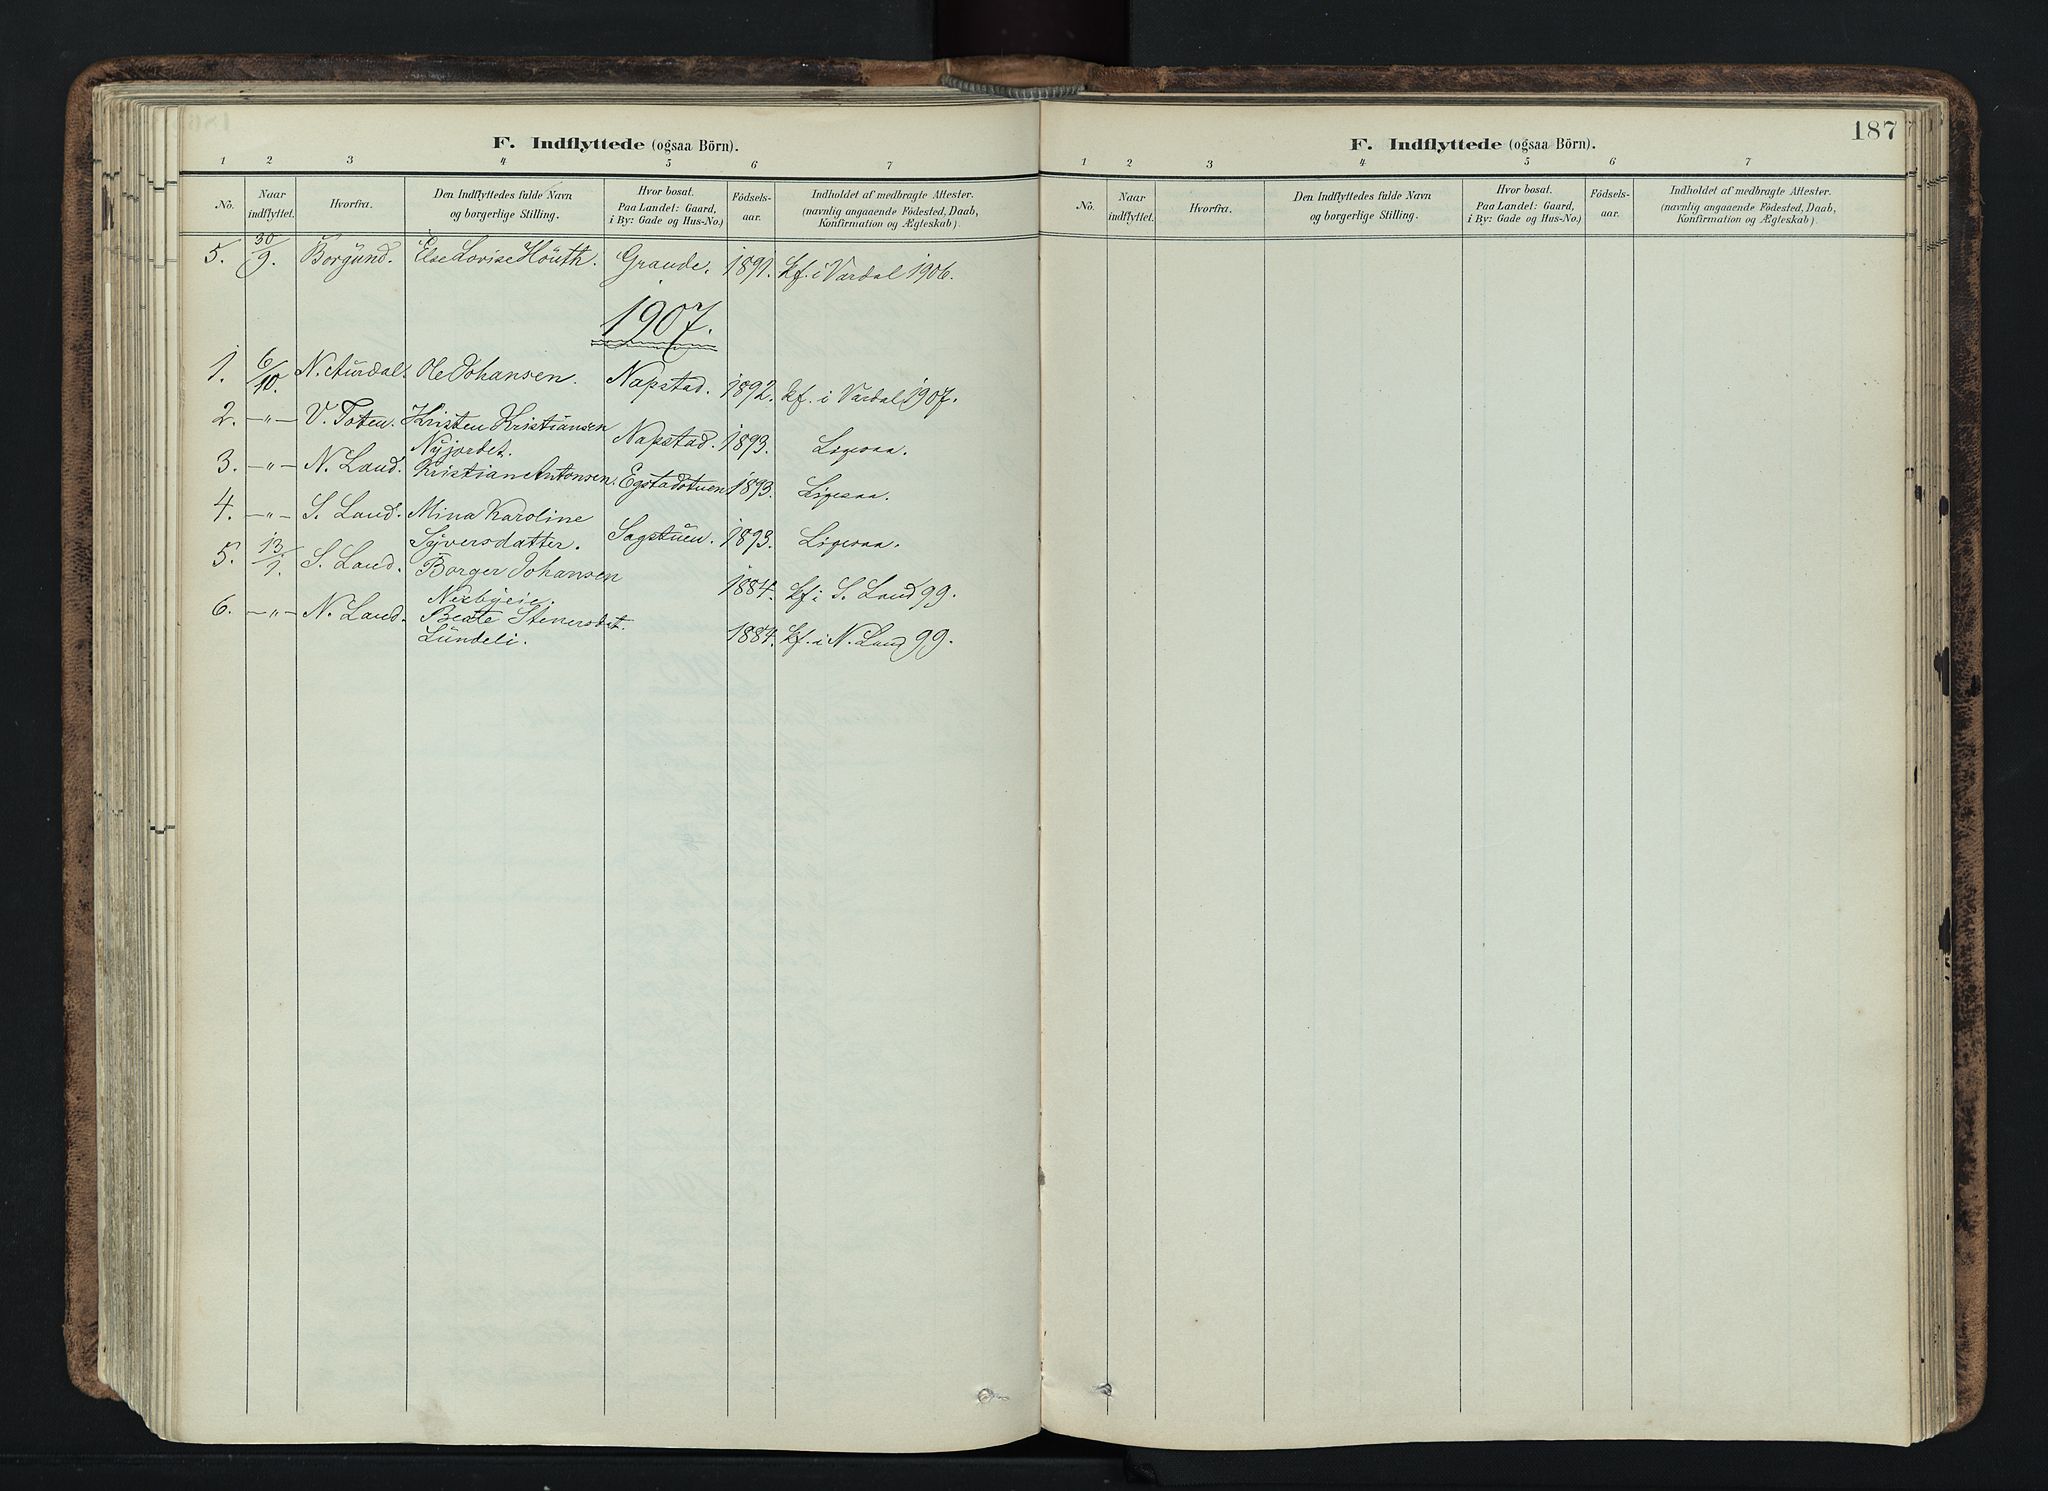 F. Indflyttede (ogsaa Börn).
1 2 3 4 5 6 7
No. Naar indflyttet. Hvorfra. Den Indflyttedes fulde Navn og borgerlige Stilling. Hvor bosat. Paa Landet: Gaard, i By: Gade og Hus-No.) Födsels-aar. Indholdet af medbragte Attester. (navnlig angaaende Födested, Daab, Konfirmation og Ægteskab).
5. 30/9. Borgund. Else Lovise Houth. Grande. 1891. kf. i Vardal 1906.
1907.
1. 6/10. N. Aurdal. Ole Johansen. Napstad. 1892. kf. i Vardal 1907.
2. -"- V. Toten. Kristen Kristiansen
Nyjordet. Napstad. 1893. Ligesaa.
3. -"- N. Land. Kristian Antonsen. Egstadstuen 1893. Ligesaa.
4. -"- S. Land. Mina Karoline
Syversdatter. Sagstuen. 1893. Ligesaa.
5. 13/1. S. Land. Borger Johansen
1884. kf. i S. Land 99.
6. -"- N. Land. Beate Stenersdat.
Lundeli. 1884. kf. i N. Land 99.
187
F. Indflyttede (ogsaa Börn).
1 2 3 4 5 6 7
No. Naar indflyttet. Hvorfra. Den Indflyttedes fulde Navn og borgerlige Stilling. Hvor bosat. Paa Landet: Gaard, i By: Gade og Hus-No.) Födsels-aar. Indholdet af medbragte Attester. (navnlig angaaende Födested, Daab, Konfirmation og Ægteskab).